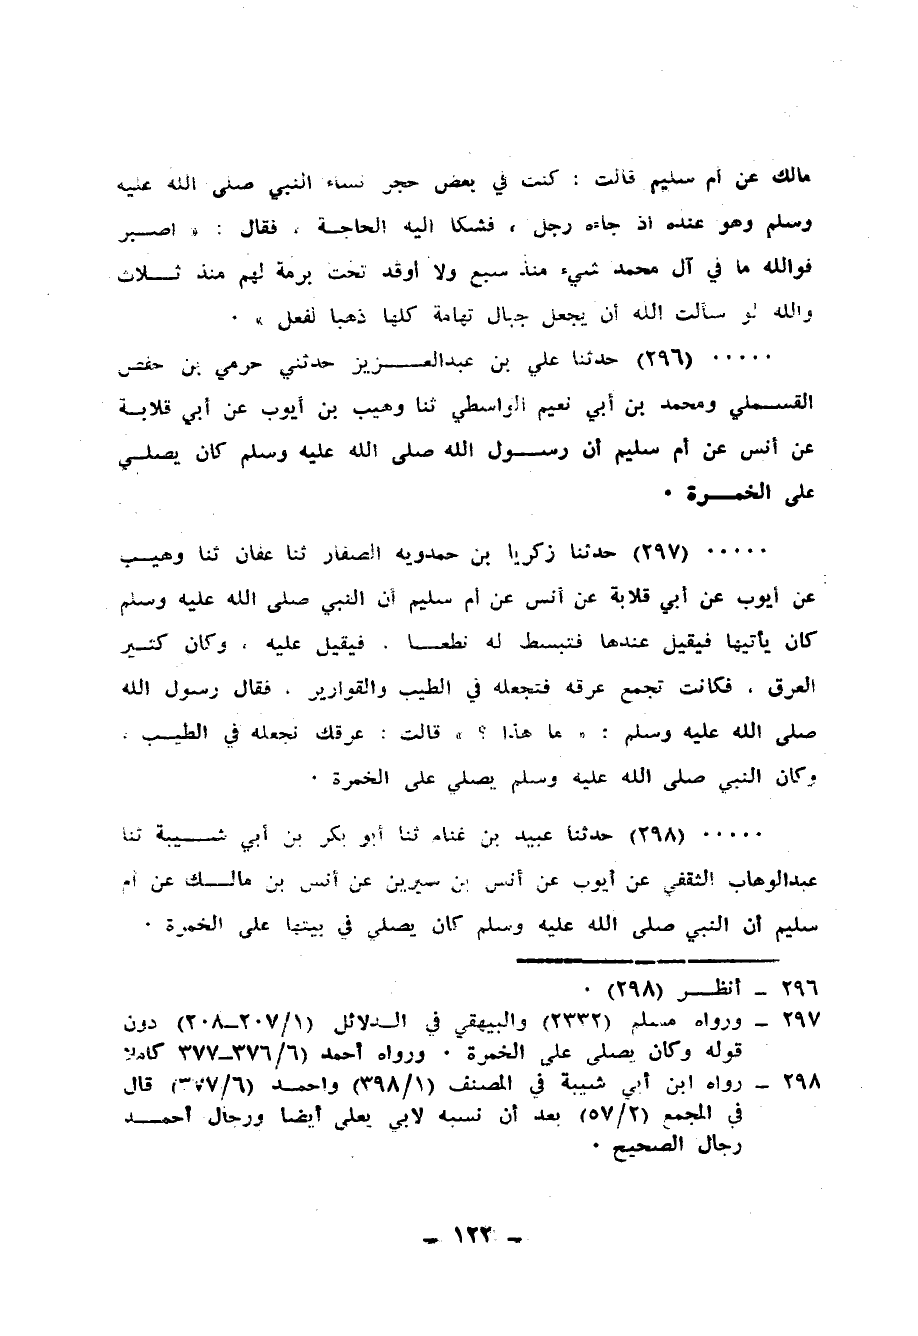 مالك عن أم سليم قالت : كنت في بعض حجر نساء النبي صلى الله عليه
وسلم وهو عنده اذ جاءه رجل ، فشكا اليه الحاجة ، فقال : « اصبر
فوالله ما في آل محمد شيء منذ سبع ولا أوقد تحت برمة لهم منذ ثلاث
والله لو سألت الله أن يجعل جبال تهامة كلها ذهبا لفعل » ٠
٠٠٠٠٠ (٢٩٦) حدثنا علي بن عبدالعزيز حدثني حرمي بن حفص
القسملي ومحمد بن أبي نعيم الواسطي ثنا وهيب بن أيوب عن أبي قلابة
عن أنس عن أم سليم أن رسول الله صلى الله عليه وسلم كان يصلي
على الخمرة ٠
٠٠٠٠٠ (٢٩٧) حدثنا زكريا بن حمدويه الصفار ثنا عفان ثنا وهيب
عن أيوب عن أبي قلابة عن أنس عن أم سليم أن النبي صلى الله عليه وسلم
كان يأتيها فيقيل عندها فتبسط له نطعا ، فيقيل عليه ، وكان كثير
العرق ، فكانت تجمع عرقه فتجعله في الطيب والقوارير ، فقال رسول الله
صلى الله عليه وسلم : « ما هذا ؟ » قالت : عرقك نجعله في الطيب ،
وكان النبي صلى الله عليه وسلم يصلي على الخمرة ٠
٠٠٠٠٠ (٢٩٨) حدثنا عبيد بن غنام ثنا أبو بكر بن أبي شيبة ثنا
عبدالوهاب الثقفي عن أيوب عن أنس بن سيرين عن أنس بن مالك عن أم
سليم أن النبي صلى الله عليه وسلم كان يصلي في بيتها على الخمرة ٠
٢٩٦ ـ أنظر (٢٩٨) ٠
٢٩٧ ـ ورواه مسلم (٢٣٣٢) والبيهقي في الدلائل (٢٠٧/١ـ٢٠٨) دون
قوله وكان يصلي على الخمرة ٠ ورواه أحمد (٣٧٦/٦ـ٣٧٧ كاملا
٢٩٨ ـ رواه ابن أبي شيبة في المصنف (٣٩٨/١) واحمد (٣٧٧/٦) قال
في المجمع (٥٧/٢) بعد أن نسبه لابي يعلى أيضا ورجال أحمد
رجال الصحيح ٠
ـ ١٢٢ ـ